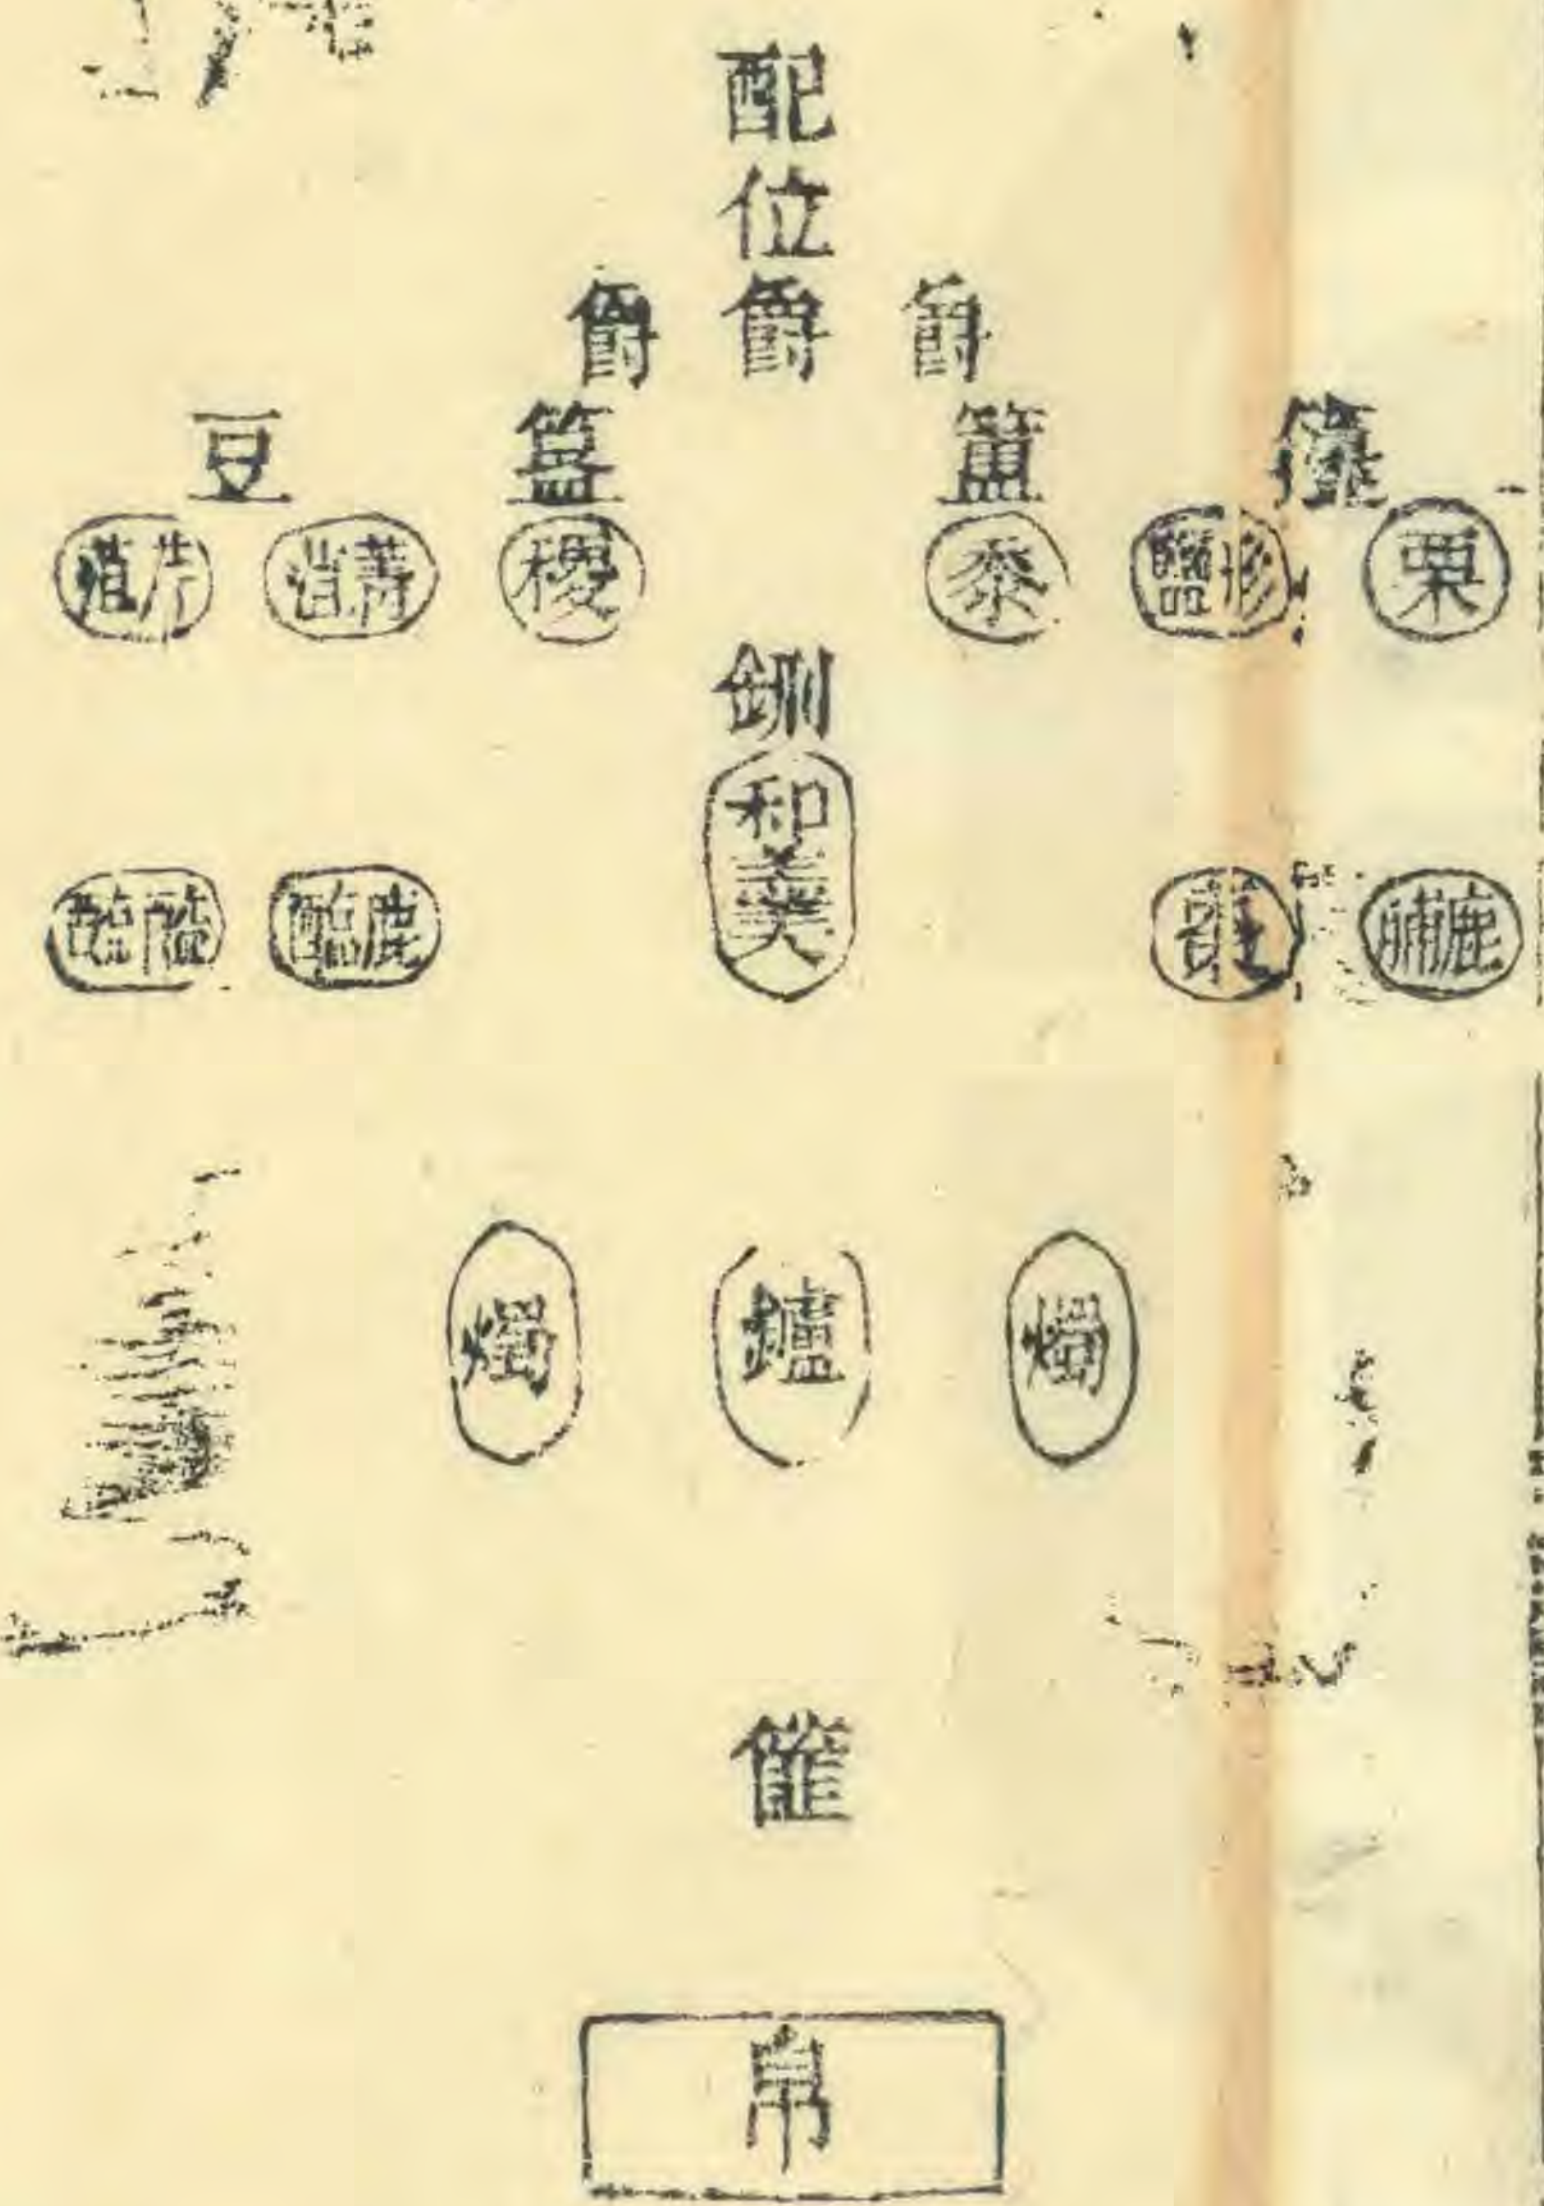 配位
爵 爵 爵
籩 簠 簋 豆
栗 形鹽 黍 稷 菁菹 芹菹
鉶
和羹
鹿脯 鹿醢 醓醢
燭 鑪 燭
篚
帛